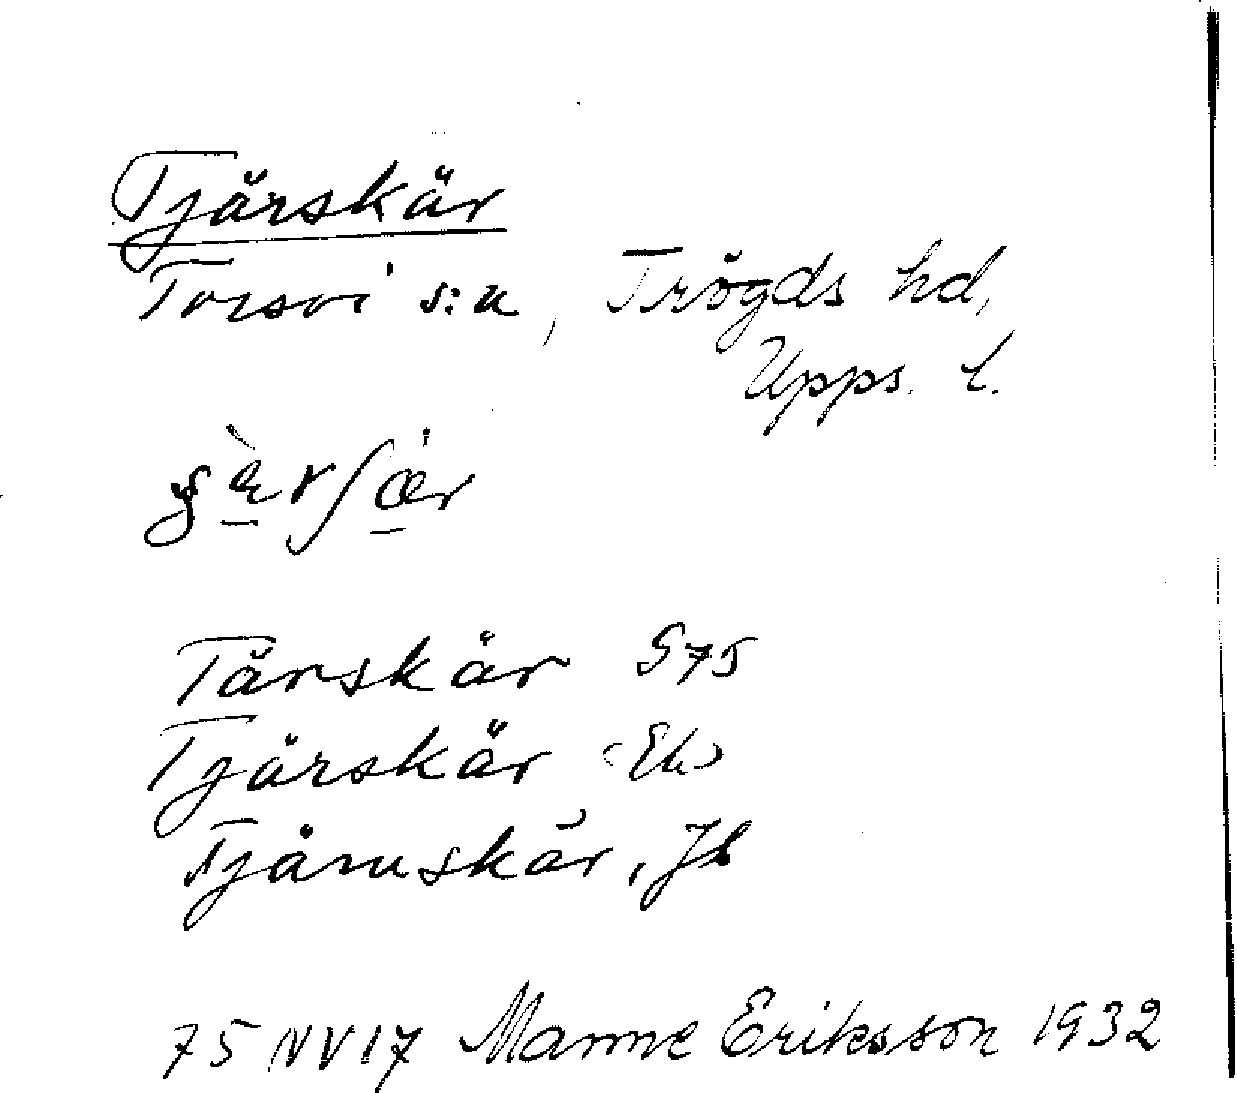 Tjärskär
Torsvi s:n, Trögds hd,
Upps. l.
Tärskär S75
Tjärskär (Ek)
Tjäruskär, Jb
75 NV 17 Manne Eriksson 1932